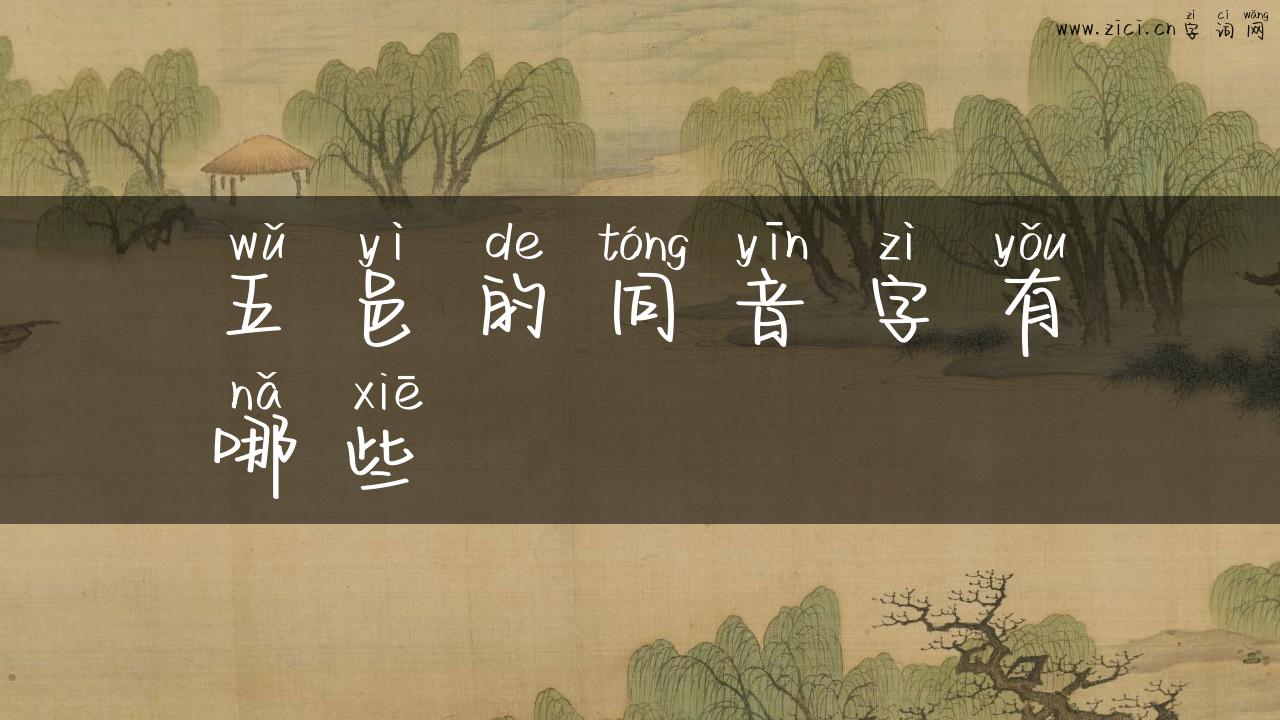 zì cí wǎng
www.zici.cn 字词网
wǔ yì de tóng yīn zì yǒu
五邑的同音字有
nǎ xiē
哪些